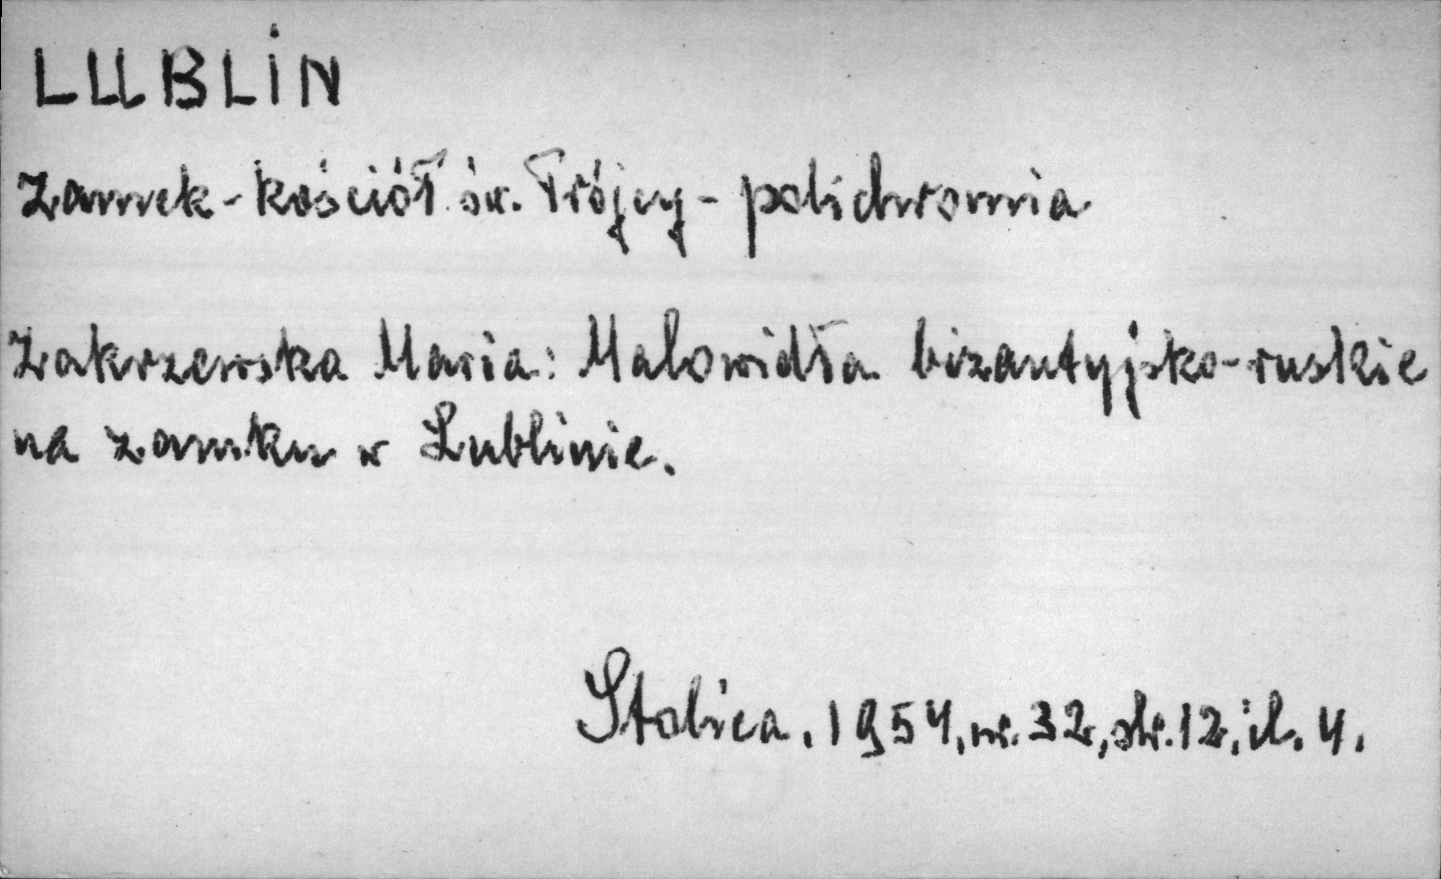 LUBLIN
Zamek-kościół św. Trójcy - polichromia
Zakrzewska Maria: Malowidła bizantyjsko-ruskie
na zamku w Lublinie.
Stolica, 1954, nr. 32, str. 12, il. 4.